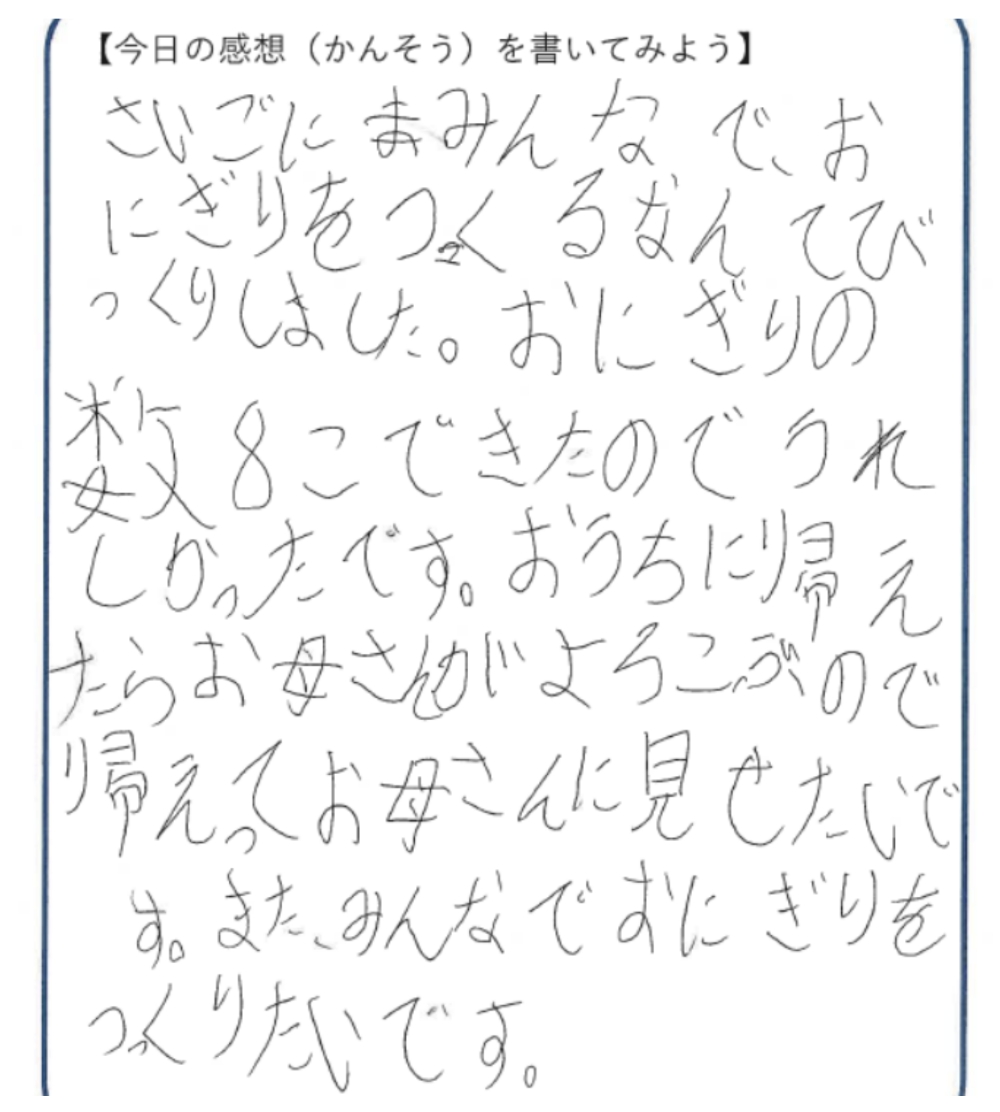 【今日の感想(かんそう)を書いてみよう】
さいごにまみんなで、お
にぎりをつくるなんてび
っくりしました。おにぎりの
数8こできたのでうれ
しかったです。おうちに帰え
たらお母さんがよろこぶので
帰えってお母さんに見せたいで
す。また、みんなでおにぎりを
つくりたいです。